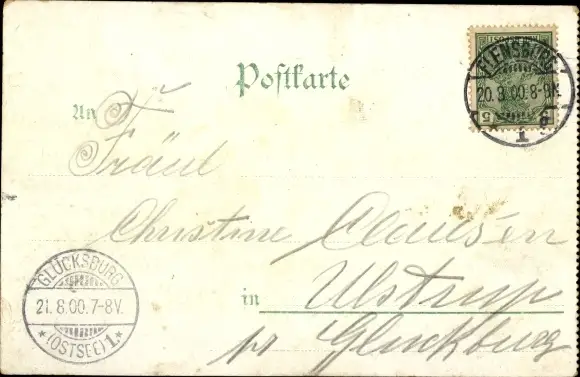 Postkarte
FLENSBURG
20.8.00.8-9V.
1
5
An
Fräul
Christine Clausen
in Ulstrup
pr Gluckburg
GLÜCKSBURG
21.8.00.7-8V.
* (OSTSEE) 1. *